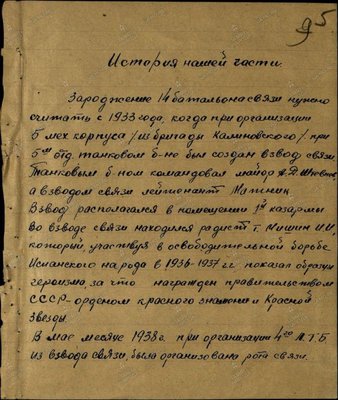 95
История нашей части.
Зарождение 14 батальона связи нужно
считать с 1933 года, когда при организации
5 мех корпуса /из бригады Калиновского/ при
5ом отд танковом б-не был создан взвод связи
Танковым б-ном командовал майор
а взводом связи лейтенант
Взвод располагался в помещении 1й казармы
Во взводе связи находился радист т. Мишин И.И,
который, участвуя в освободительной борьбе
Испанского народа в 1936-1937 г.г показал образцы
героизма, за что награжден правительством
СССР-орденом красного знамени и Красной
Звезды.
В мае месяце 1938 г. при организации 4го Л.Т.Б
из взвода связи, была организована рота связи.